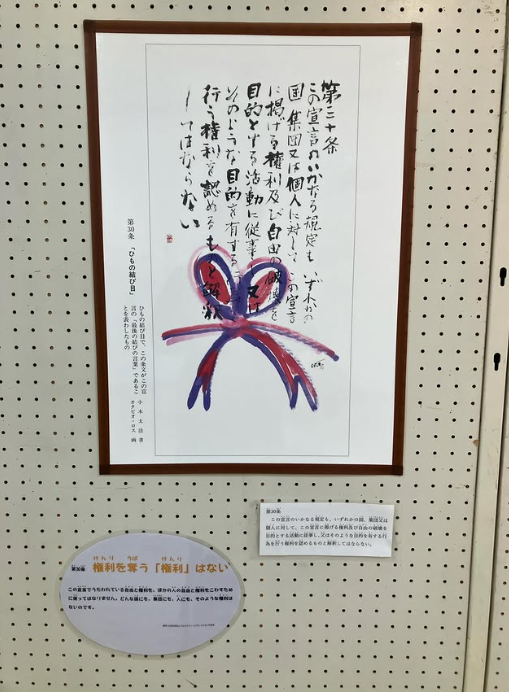 第三十条
この宣言のいかなる規定も、いずれかの
国、集団又は個人に対して、この宣言
に掲げる権利及び自由の破壊を
目的とする活動に従事し、又は
そのような目的を有する
行う権利を認めるものと解釈
してはならない
第30条 「ひもの結び目」
ひもの結び目で、この条文がこの宣
言の「最後の結びの言葉」であるこ
とを表わしたもの
オクタビオ・ロス 画
第30条
この宣言のいかなる規定も、いずれかの国、集団又は
個人に対して、この宣言に掲げる権利及び自由の破壊を
目的とする活動に従事し、又はそのような目的を有する行
為を行う権利を認めるものと解釈してはならない。
けんり うば けんり
第30条 権利を奪う「権利」はない
この宣言でうたわれている自由と権利を、ほかの人の自由と権利をこわすため
に使ってはなりません。どんな国にも、集団にも、人にも、そのような権利は
ないのです。